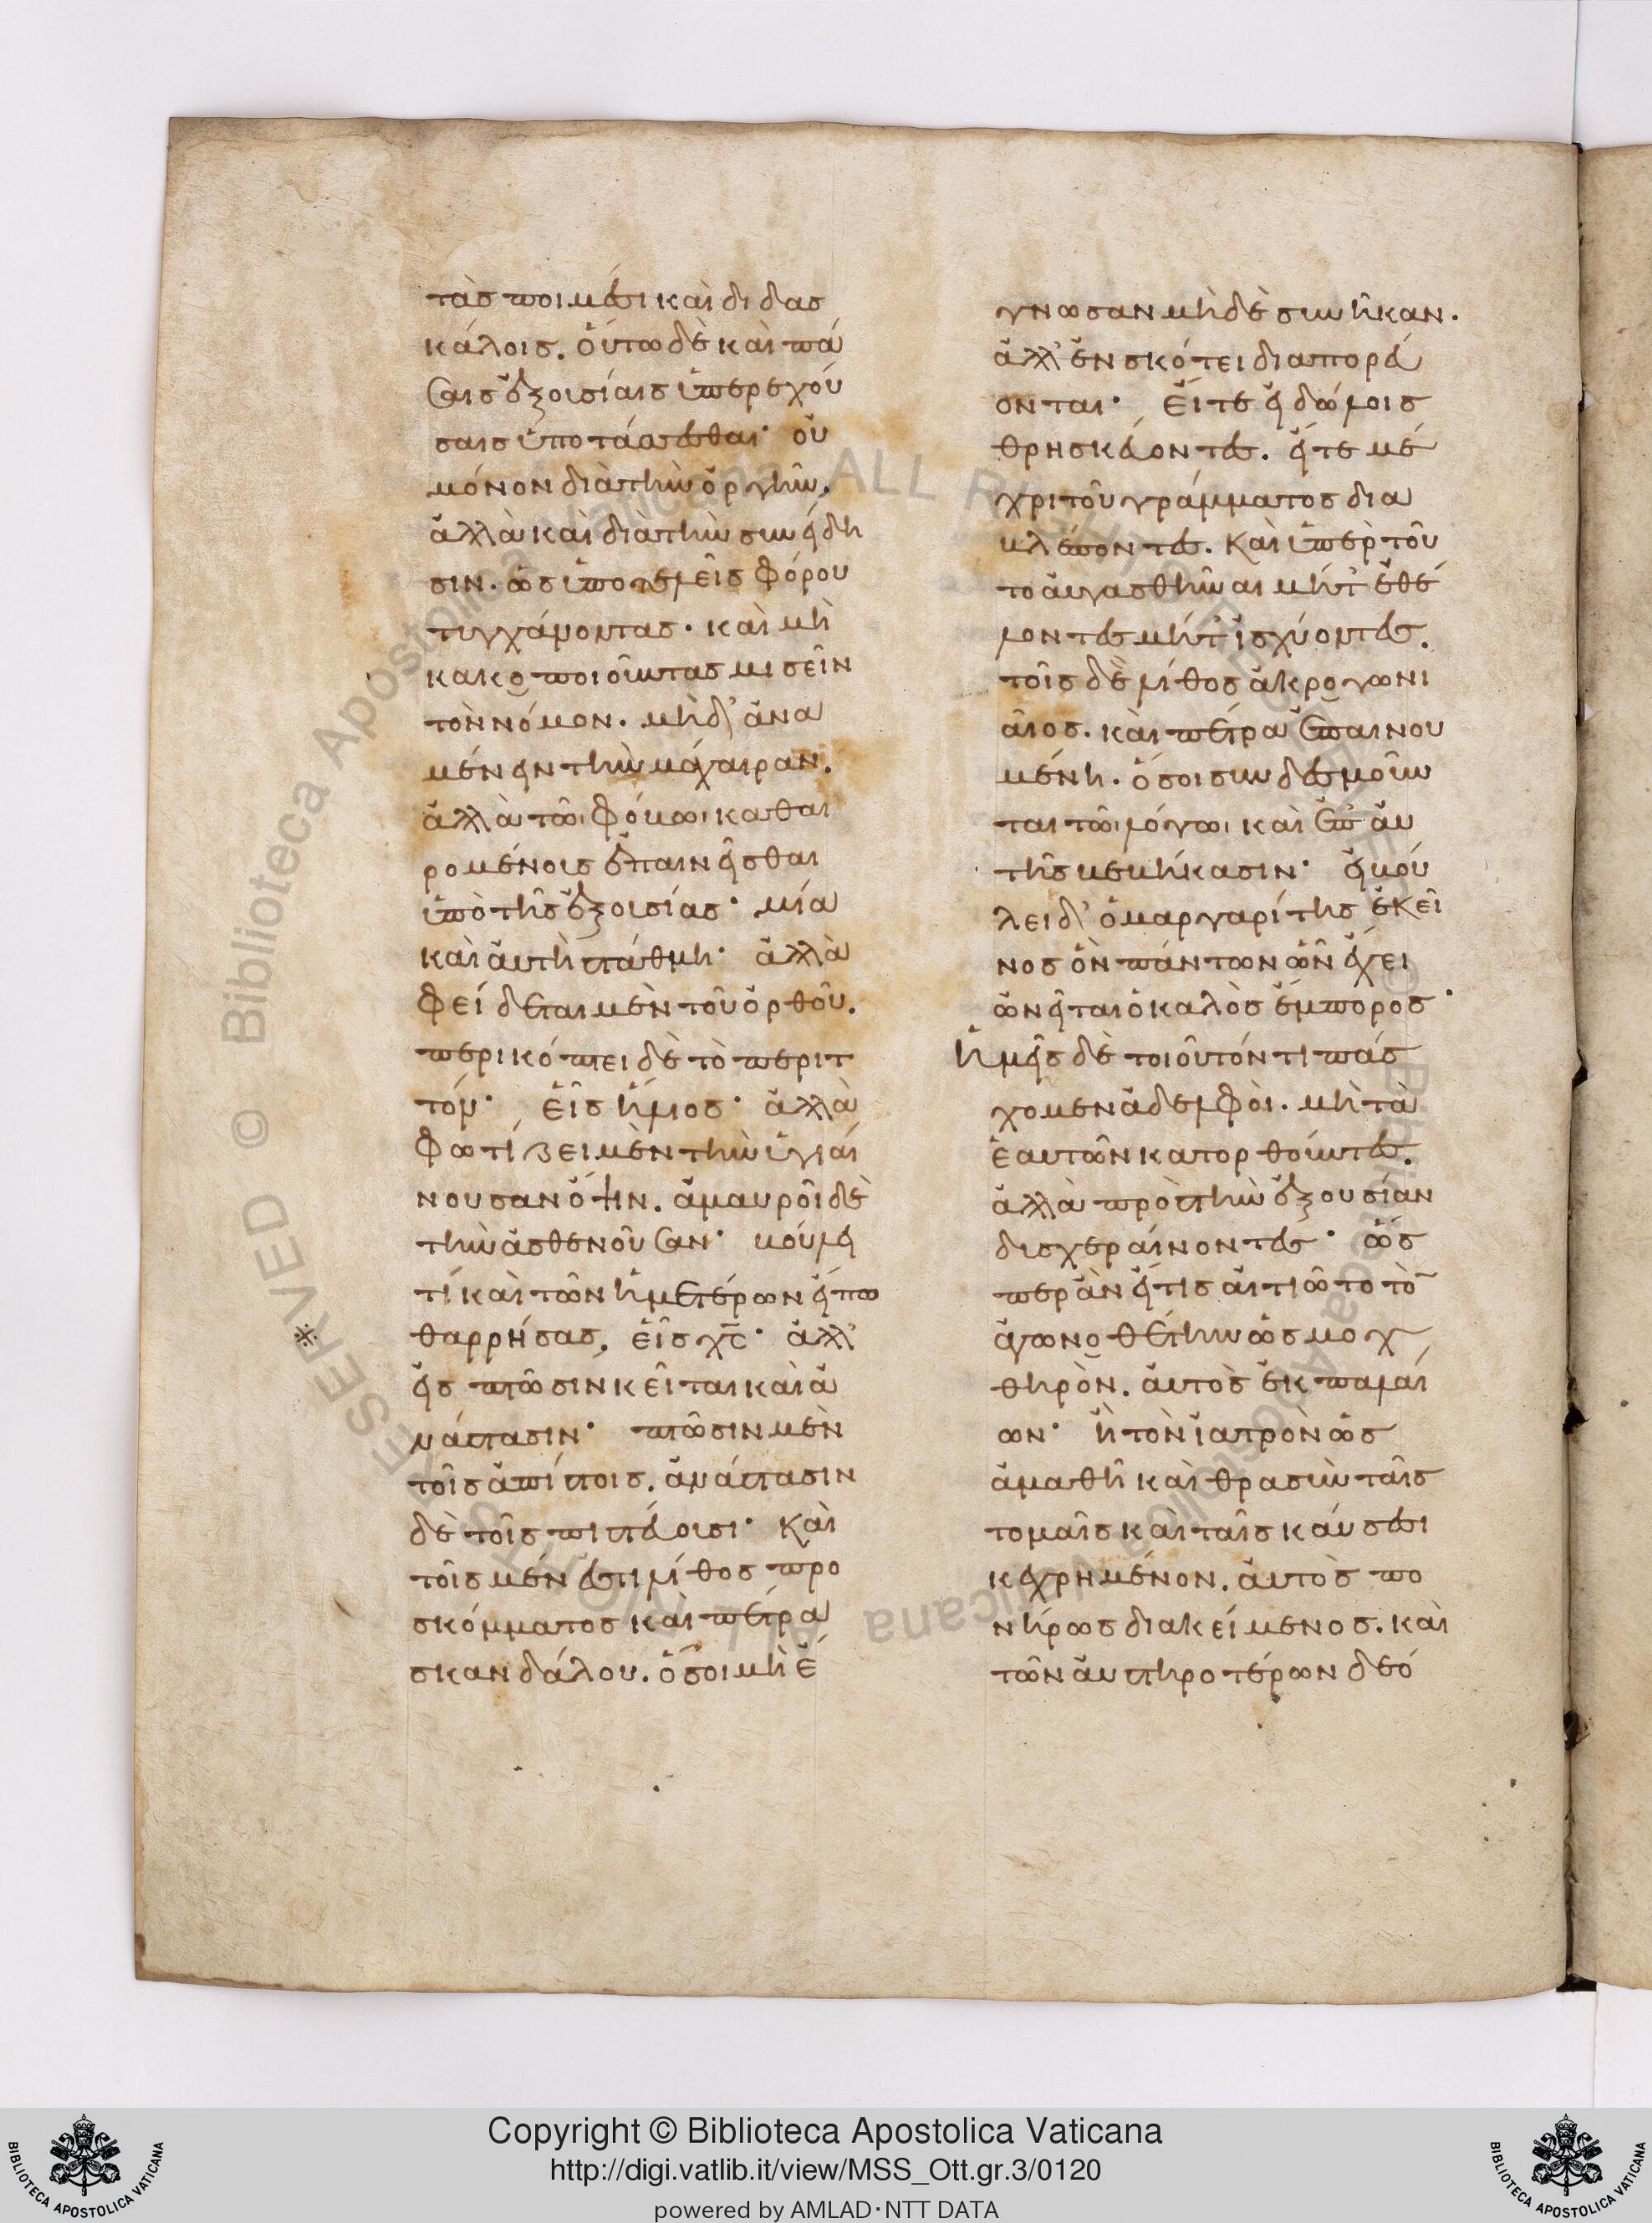 τὰσ ποιμέσι καὶ διδασ
κάλοισ. οὕτω δὲ καὶ πά
σαισ ἐξουσίαισ ὑπερεχού
σαισ ὑποτάσσεσθαι· οὐ
μόνον διὰ τὴν ὀργὴν.
ἀλλὰ καὶ διὰ τὴν συνείδη
σιν. ὡσ ὑποτελεῖσ φόρου
τυγχάνοντασ. καὶ μὴ
κακοποιοῦντασ μισεῖν
τὸν νόμον. μὴ δ' ἀνα
μένειν τὴν μάχαιραν.
ἀλλὰ τῶι φόβωι καθαι
ρομένοισ ἐπαινεῖσθαι
ὑπὸ τῆσ ἐξουσίασ· μία
καὶ αὐτὴ στάθμη· ἀλλὰ
φείδεται μὲν τοῦ ὀρθοῦ.
περικόπτει δὲ τὸ περιτ
τόν· εἷσ ἥλιοσ· ἀλλὰ
φωτίζει μὲν τὴν ὑγιαί
νουσαν ὄψιν. ἀμαυροῖ δὲ
τὴν ἀσθενοῦσαν· βούλει
τί καὶ τῶν ἡμετέρων εἴπω
θαρρήσασ, εἷσ χ̅ς̅· ἀλλ'
εἰσ πτῶσιν κεῖται καὶ ἀ
νάστασιν· πτῶσιν μὲν
τοῖσ ἀπίστοισ. ἀνάστασιν
δὲ τοῖσ πιστεύουσι· καὶ
τοῖσ μέν ἐστι λίθοσ προ
σκόμματοσ καὶ πέτρα
σκανδάλου. ὅσοι μὴ ἔ
γνωσαν μὴ δὲ συνῆκαν.
ἀλλ' ἐν σκότει διαπορεύ
ονται· εἴτε εἰδώλοισ
θρησκεύοντεσ. εἴτε μέ
χρι τοῦ γράμματοσ δια
βλέποντεσ. καὶ ὑπὲρ τοῦ
το αὐγασθῆναι μήτ' ἐθέ
λοντεσ μήτ' ἰσχύοντεσ.
τοῖσ δὲ λίθοσ ἀκρογωνι
αῖοσ. καὶ πέτρα ἐπαινου
μένη. ὅσοι συνδεσμοῦν
ται τῶι λόγωι καὶ ἐπ' αὐ
τῆσ βεβήκασιν· εἰ βού
λει δ' ὁ μαργαρίτησ ἐκεῖ
νοσ ὃν πάντων ὧν ἔχει
ὠνεῖται ὁ καλὸσ ἔμποροσ·
Ἡμεῖσ δὲ τοιοῦτόν τι πάσ
χομεν ἀδελφοὶ. μὴ τὰ
ἑαυτῶν κατορθοῦντεσ.
ἀλλὰ πρὸσ τὴν ἐξουσίαν
δυσχεραίνοντεσ· ὥσ
περ ἂν εἴ τισ αἰτιῶτο τὸν
ἀγωνοθέτην ὡσ μοχ
θηρὸν. αὐτὸσ ἐκπαλαί
ων· ἢ τὸν ἰατρὸν ὡσ
ἀμαθῆ καὶ θρασὺν ταῖσ
τομαῖσ καὶ ταῖσ καύσεσι
κεχρημένον. αὐτὸσ πο
νήρωσ διακείμενοσ. καὶ
τῶν αὐστηροτέρων δεό
Copyright © Biblioteca Apostolica Vaticana
http://digi.vatlib.it/view/MSS_Ott.gr.3/0120
powered by AMLAD·NTT DATA
BIBLIOTECA APOSTOLICA VATICANA
BIBLIOTECA APOSTOLICA VATICANA